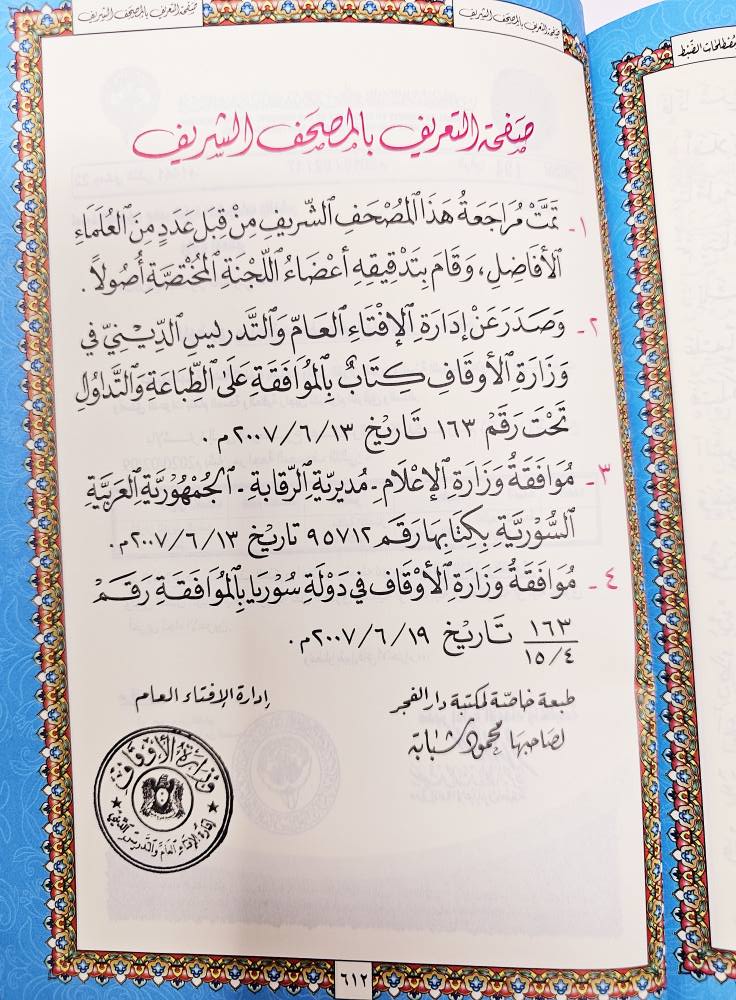 صفحة التعريف بالمصحف الشريف
صفحة التعريف بالمصحف الشريف
صَفحة التعريف بالمصحف الشريف
١- تَمَّتْ مُرَاجَعَةُ هَذَا ٱلْمُصْحَفِ ٱلشَّرِيفِ مِنْ قِبَلِ عَدَدٍ مِنَ ٱلْعُلَمَاءِ
ٱلْأَفَاضِلِ، وَقَامَ بِتَدْقِيقِهِ أَعْضَاءُ ٱللَّجْنَةِ ٱلْمُخْتَصَّةِ أُصُولاً.
٢- وَصَدَرَ عَنْ إِدَارَةِ ٱلْإِفْتَاءِ ٱلْعَامِّ وَٱلتَّدْرِيسِ ٱلدِّينِيِّ فِي
وَزَارَةِ ٱلْأَوْقَافِ كِتَابٌ بِٱلْمُوَافَقَةِ عَلَىٰ ٱلطِّبَاعَةِ وَٱلتَّدَاوُلِ
تَحْتَ رَقَمْ ١٦٣ تَارِيْخ ٢٠٠٧/٦/١٣م.
٣- مُوَافَقَةُ وَزَارَةِ ٱلْإِعْلَامِ - مُدِيرِيَّةِ ٱلرَّقَابَةِ - ٱلْجُمْهُورِيَّةِ ٱلْعَرَبِيَّةِ
ٱلسُّورِيَّةِ بِكِتَابِهَا رَقَم ٩٥٧١٢ تَارِيْخ ٢٠٠٧/٦/١٣م.
٤- مُوَافَقَةُ وَزَارَةِ ٱلْأَوْقَافِ فِي دَوْلَةِ سُورْيَا بِٱلْمُوَافَقَةِ رَقَمْ
١٦٣
١٥/٤ تَارِيْخ ٢٠٠٧/٦/١٩م.
طبعة خاصّة لمكتبة دار الفجر
لصاحبها محمود شبابة
إدارة الإفتاء العام
وزارة الأوقاف
إدارة الإفتاء العام والتدريس الديني
٦١٢
الضبط